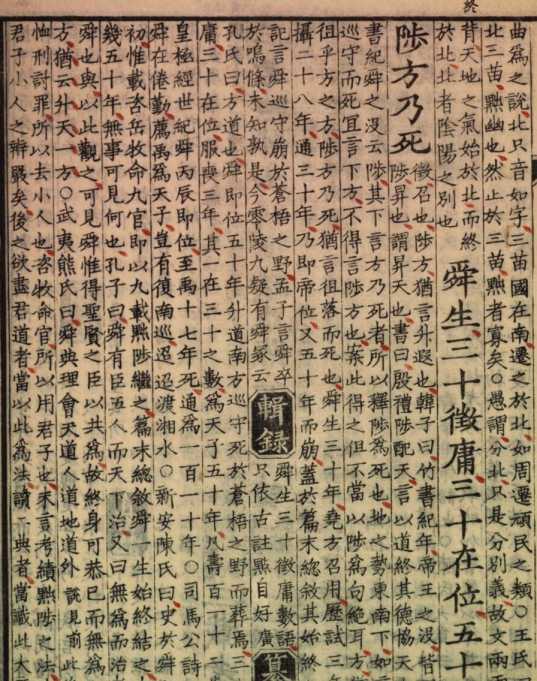 終
曲為之說北只音如字三苗國在南遷之於北如周遷頑民之類○王氏
北三苗黜幽也然止於三苗黜者寡矣○愚謂分北只是分別義故文兩
背天地之氣始於北而終
於北北者陰陽之別也
舜生三十徵庸三十在位五十
陟方乃死
徵召也陟方猶言升遐也韓子曰竹書紀年帝王之沒皆
陟昇也謂昇天也書曰殷禮陟配天言以道終其德協天
書紀舜之沒云陟其下言方乃死者所以釋陟為死也地之勢東南下如言
巡守而死宜言下方不得言陟方也按此得之但不當以陟為句絕耳方
徂乎方之方陟方乃死猶言徂落而死也舜生三十年堯方召用歷試三年
攝二十八年通三十年乃即帝位又五十年而崩蓋於篇末總敘其始終
記言舜巡守崩於蒼梧之野孟子言舜卒
於鳴條未知孰是今零陵九疑有舜冢云
輯錄
舜生三十徵庸數語
只依古註點自好廣
纂
孔氏曰方道也舜即位五十年升道南方巡守死於蒼梧之野而葬焉三
庸三十在位服喪三年其一在三十之數為天子五十年凡壽百一十二
皇極經世紀舜丙辰即位至禹十七年死通為一百一十年○司馬公詩
舜在倦勤薦禹為天子豈有復南巡迢迢渡湘水○新安陳氏曰史於舜
初惟載咨岳牧命九官即以九載黜陟繼之篇末總敘舜一生始終結之
幾五十年無事可見何也孔子曰舜有臣五人而天下治又曰無為而治
舜也與以此觀之可見舜惟得聖賢之臣以共為故終身可恭己而無為
古猶云升天一方○武夷熊氏曰舜典理會天道人道地道外說見前此
恤刑討罪所以去小人也咨牧命官所以用君子也末言考績黜陟之法
君子小人之辨嚴矣後之欲盡君道者當以此為法讀二典者當識此大